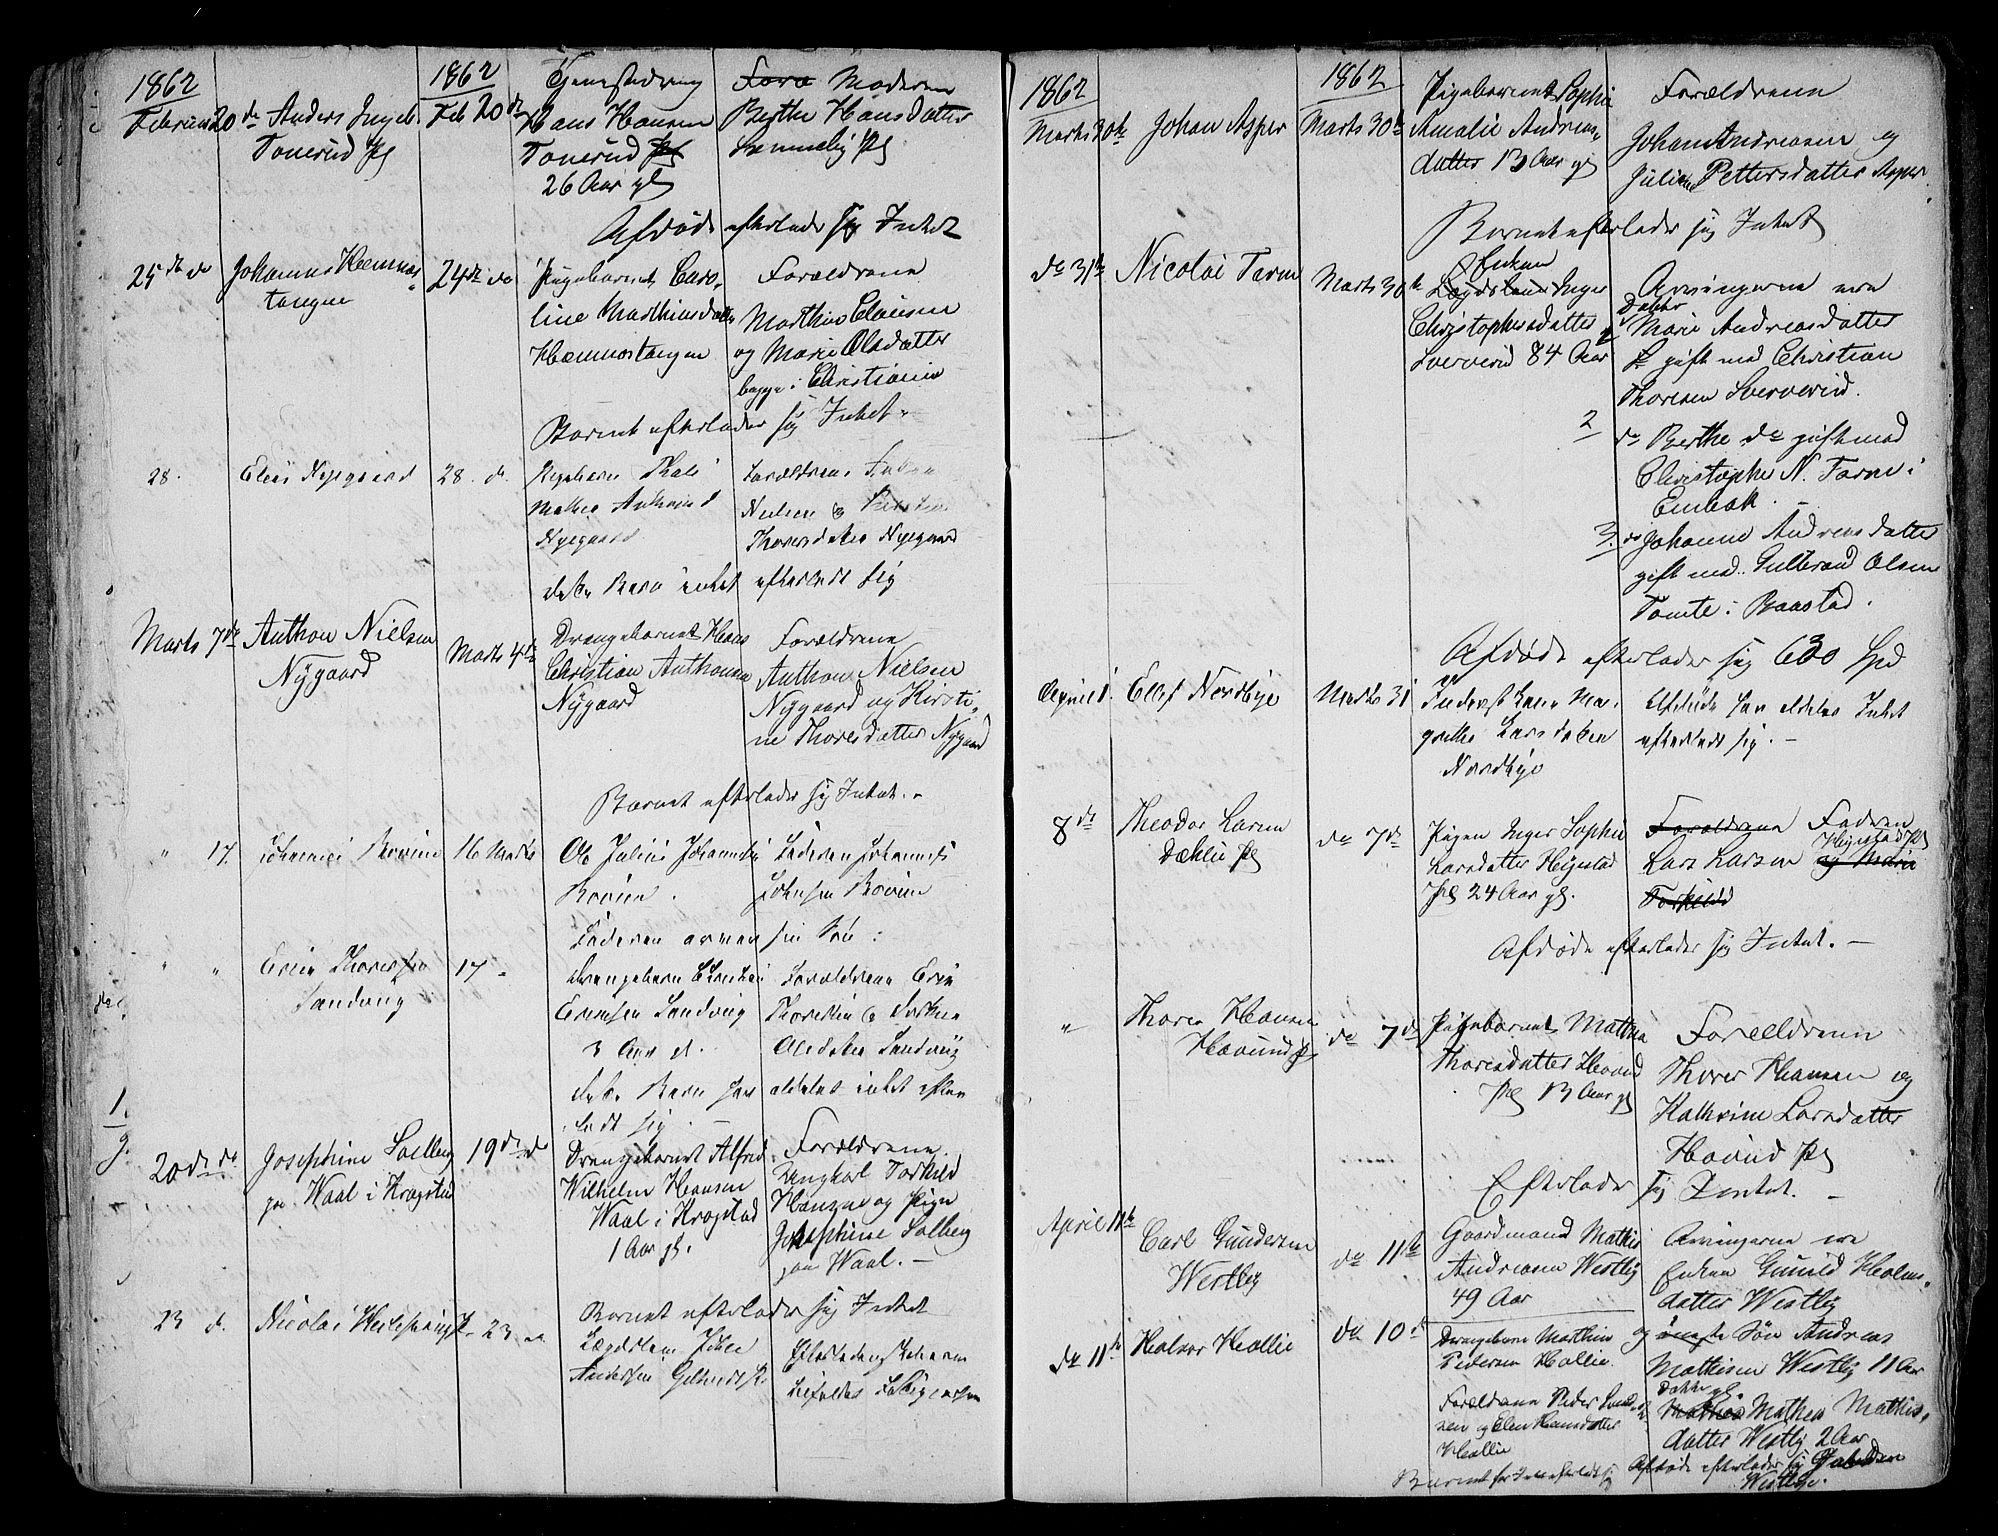 1862
1862
Februar 20de Anders Ingeb.
Tonerud
Feb 20de
Tjenestedreng
Hans Hansen
Tonerud
26 Aar gl
Fora Moderen
Berthe Hansdatter
Afdøde efterlader sig Intet
25de do
Johannes Hemnæs
tangen
24de do
Pigebarnet Caro-
line Marthinsdatter
Hemnæstangen
Forældrene
Marthin Clausen
og Marie Olsdatter
begge i Christiania
Barnet efterlader sig Intet
28.
Nygaard
28. d.
Pigebarn
Mathea
Nygaard
Forældrene
Nielsen &
Thoresdatter Nygaard
dette Barn intet efterladt sig
Marts 7de
Anthon Nielsen
Nygaard
Marts 4de
Drengebarnet Hans
Christian Anthonsen
Nygaard
Forældrene
Anthon Nielsen
Nygaard og Kirsti-
ne Thoresdatter Nygaard
Barnet efterlader sig Intet.
" 17.
Johannes Rovien
16 Marts
Ole Julius Johannesen
Rovien.
Faderen Johannes
Johnsen Rovien
Faderen arver sin Søn
" "
Thoresen
Sandvig
17
Drengebarn
Sandvig
3 Aar gl.
Forældrene
Thoresen &
Olesdatter Sandvig
dette Barn har aldeles intet efter
ladt sig
20de do
Josephine Solberg
paa Waal i Kragstad
19de do
Drengebarnet Alfred
Wilhelm Hansen
Waal i Kragstad
1 Aar gl.
Forældrene
Ungkarl Torkild
Hansen og Pigen
Josephine Solberg
paa Waal.
Barnet efterlader sig Intet
23 d.
Nicolai
23
Lægdslem
Andersen
1862
1862
Marts 30te
Johan Asper
Marts 30te
Pigebarnet Sophie
Amalie Andreas-
datter 13 Aar gl
Forældrene
Johan Andreasen og
Juliane Pettersdatter Asper
Barnet efterlader sig Intet
do 31te
Nicolai Tarm
Marts 30te
Enken
Lægdslem Inger
Christophersdatter
Sververud 84 Aar
Arvingerne ere
Datter
Marie Andreasdatter
gift med Christian
Thoresen Sververud.
2
do Berthe do gift med
Christopher N. Tarm i
Enebak.
3. do Johanne Andreasdatter
gift med Gulbrand Olsen
Tomte i Baastad.
Afdøde efterlader sig 630 Spd
April 1.
Ellef Nordbye
Marts 31
Inderst Karen Mar-
grethe Larsdatter
Nordbye
Afdøde har aldeles Intet
efterladt sig.
8de
Theodor Larsen
Dæhlie
do 7de
Pigen Inger Sophie
Larsdatter Hegnstad
24 Aar gl.
Forældrene Faderen
Lars Larsen Hegnstad
og Maria
Torkild
Afdøde efterlader sig Intet.
"
Thorer Hansen
Hovind
do 7de
Pigebarnet Mathea
Thoresdatter Hovind
13 Aar gl
Forældrene
Thorer Hansen og
Kathrine Larsdatter
Hovind
Efterlader sig Intet.
April 11te
Carl Gundersen
Westby
do 11te
Gaardmand Mathis
Andreasen Westby
49 Aar
Arvingerne ere
Enken Gunild Holms-
datter Westby
og yngste Søn Andreas
Mathisen Westby 11 Aar
Datter
Mathea Mathea Mathis-
datter Westby 2 Aar
Afdøde efterlader sig
Westbye.
do 11te
Halvor Hallie
do 10de
Drengebarn Marthin
Pedersen Hallie
Forældrene Peder
og Elen Hansdatter
Hallie
Barnet